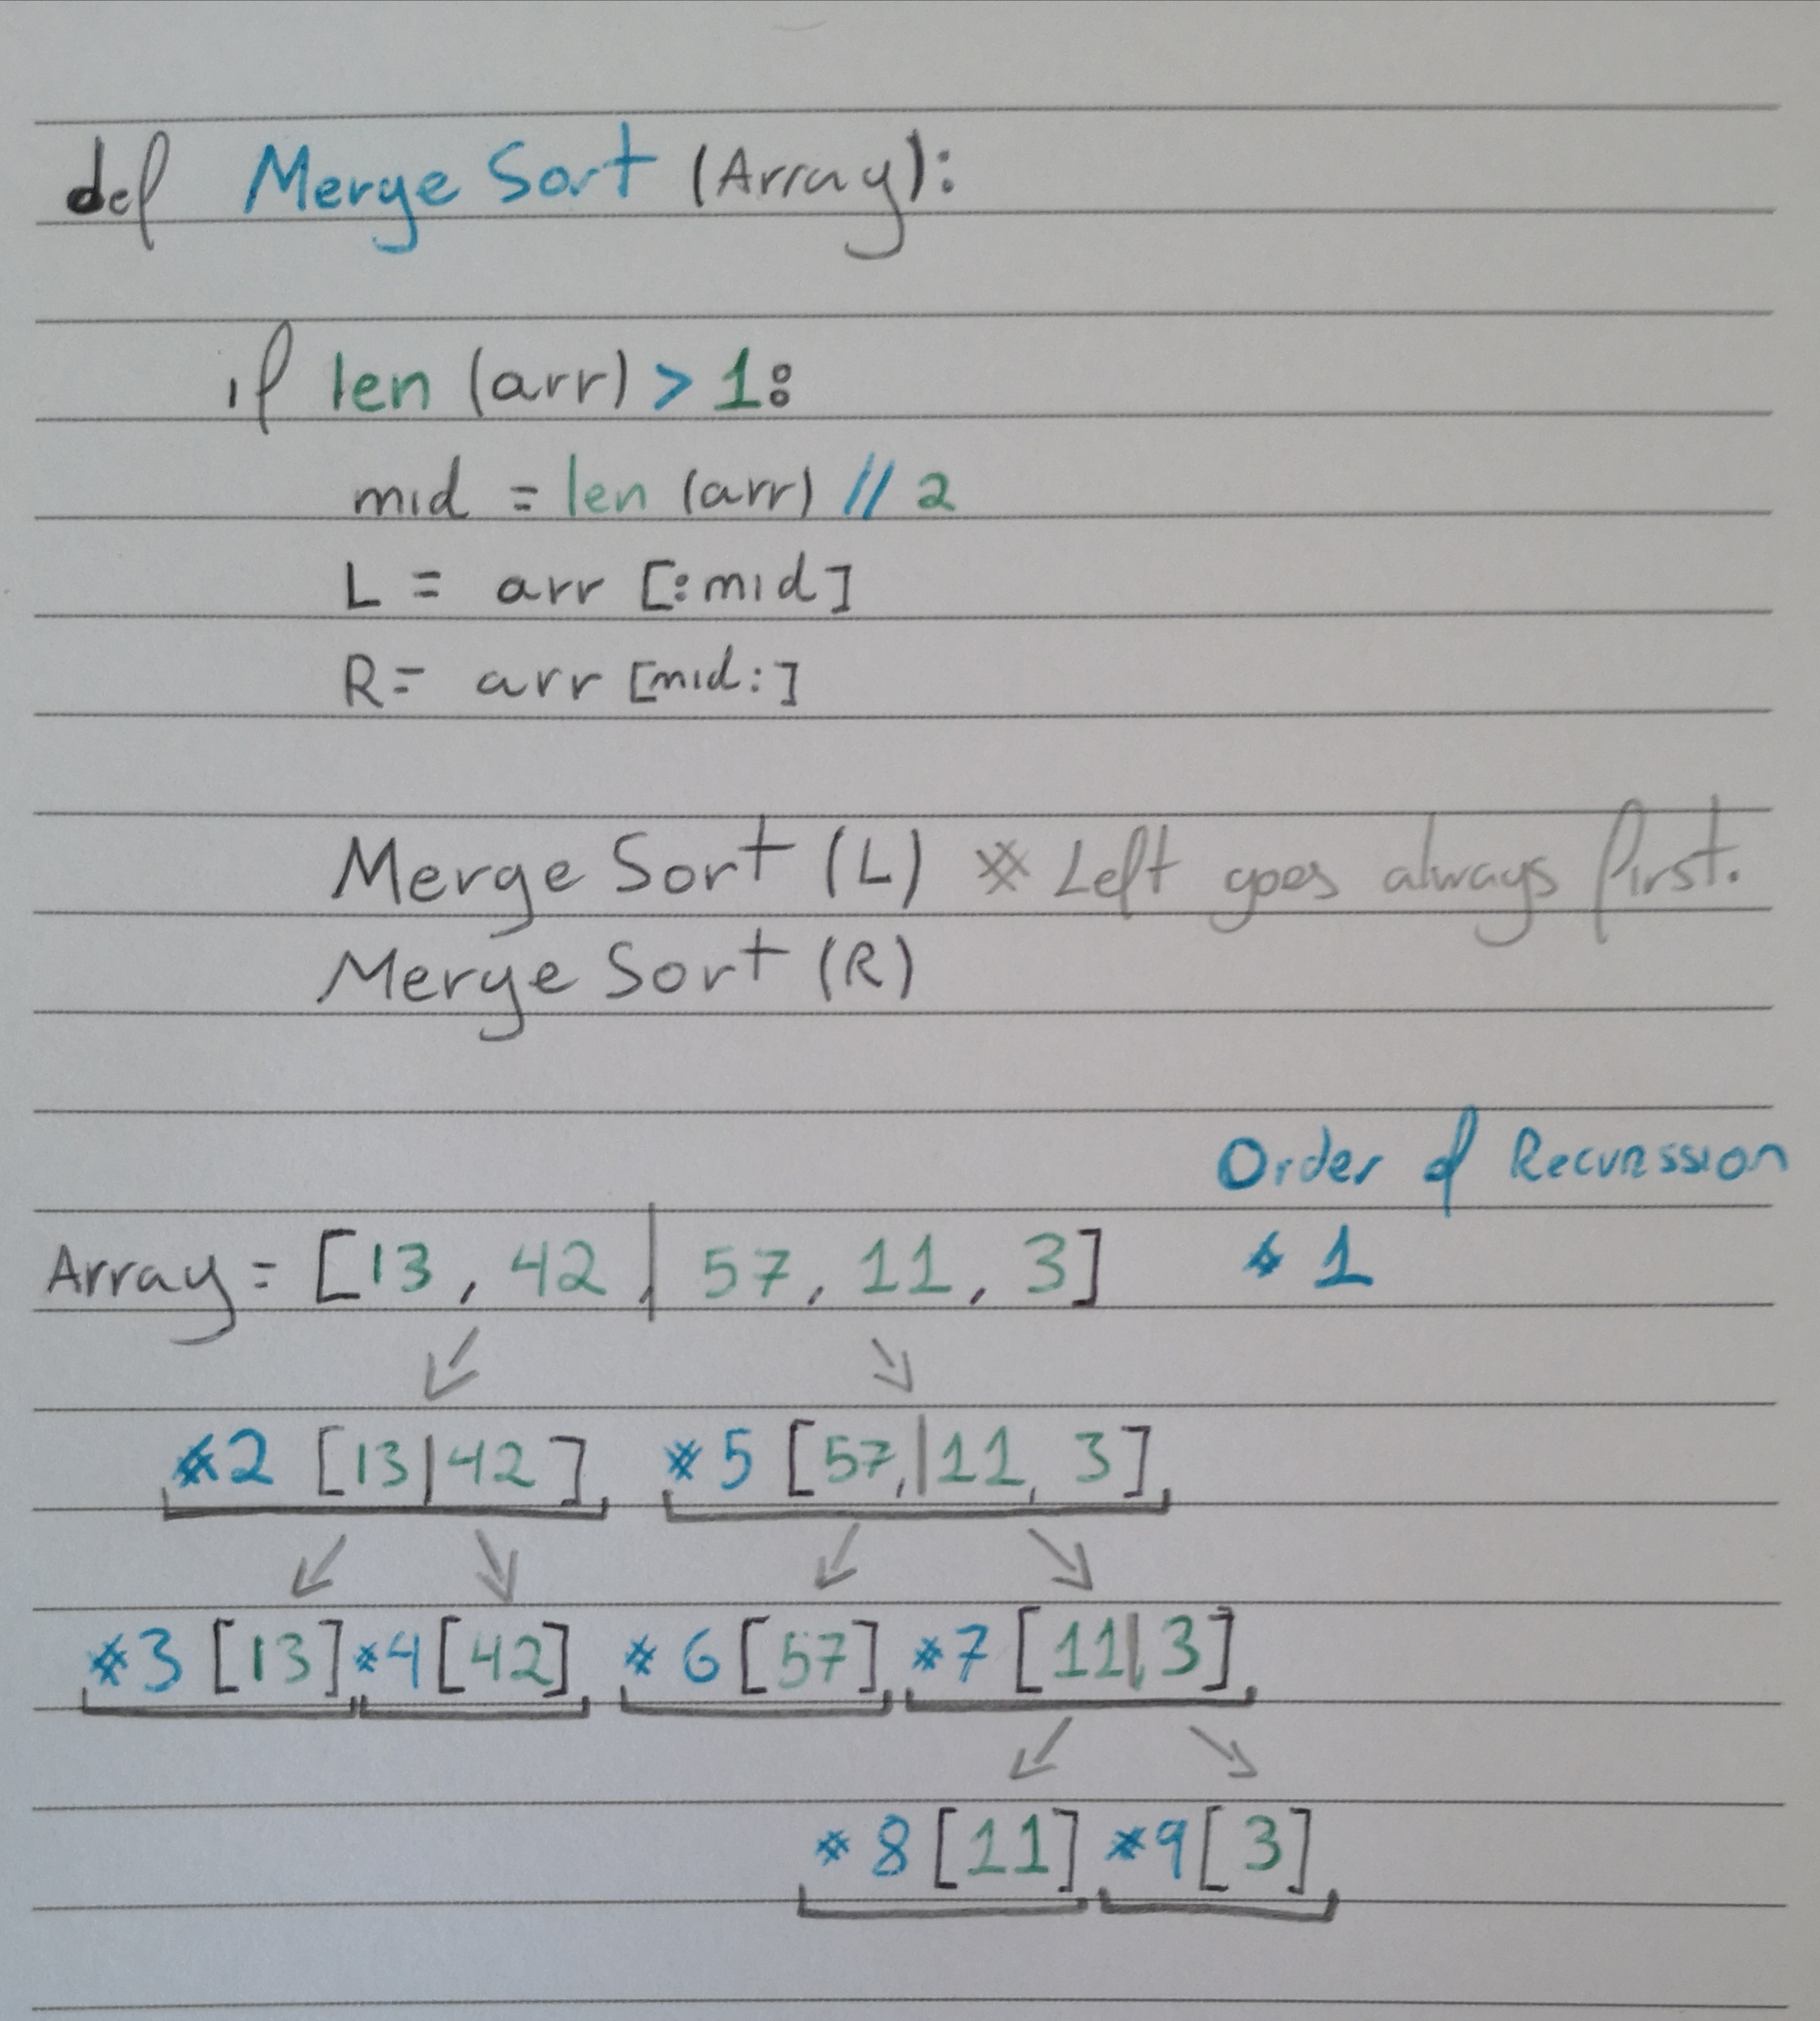 def Merge Sort (Array):
if len (arr) > 1:
mid = len (arr) // 2
L = arr [:mid]
R = arr [mid:]
Merge Sort (L) # Left goes always first.
Merge Sort (R)
Order of Recurssion
Array = [13, 42 | 57, 11, 3] # 1
#2 [13|42] #5 [57,|11, 3]
#3 [13] #4 [42] #6 [57] #7 [11|3]
#8 [11] #9 [3]